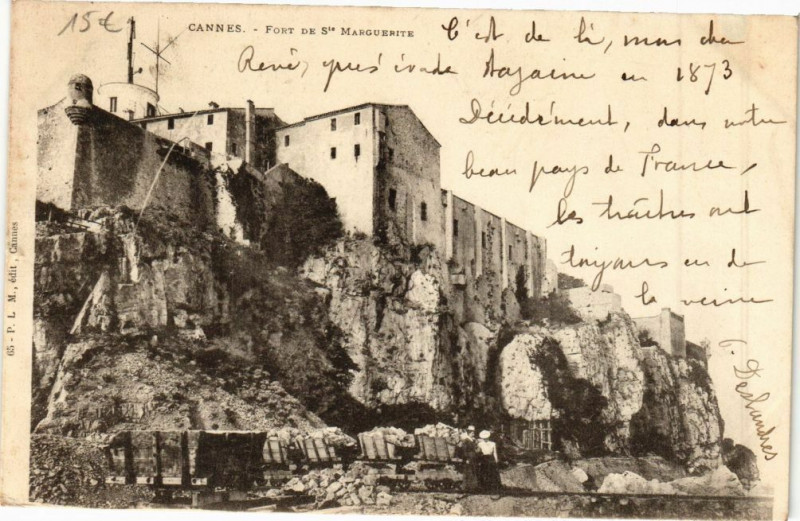 15€
CANNES. - FORT DE Ste MARGUERITE
C'est de là, mon cher
René, que s'évada Bazaine en 1873
Décidément, dans notre
beau pays de France,
les traîtres ont
toujours eu de
la veine
Deslandres
65 - P. L. M., édit, Cannes